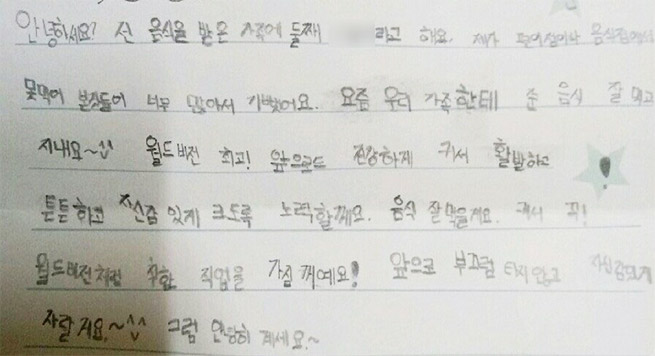 안녕하세요? 전 음식을 받은 가족에 둘째 라고 해요. 제가 편의점이나 음식점에서
못먹어 본것들이 너무 많아서 기뻤어요. 요즘 우리 가족한테 준 음식 잘 먹고
지내요~^^ 월드비전 최고! 앞으로도 건강하게 커서 활발하고
튼튼하고 자신감 있게 크도록 노력할께요. 음식 잘먹을게요. 커서 꼭!
월드비전처럼 착한 직업을 가질 꺼예요! 앞으로 부끄럼 타지않고 자신감있게
자랄게요.~^^ 그럼 안녕히 계세요~